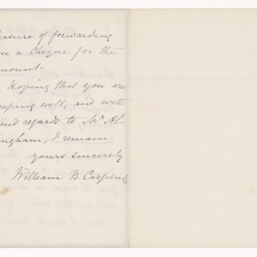 easure of forwarding
you a Cheque for the
mount.
Hoping that you are
eeping well, and with
kind regards to Mr Al-
lingham, I remain
yours sincerely
William B. Carpente